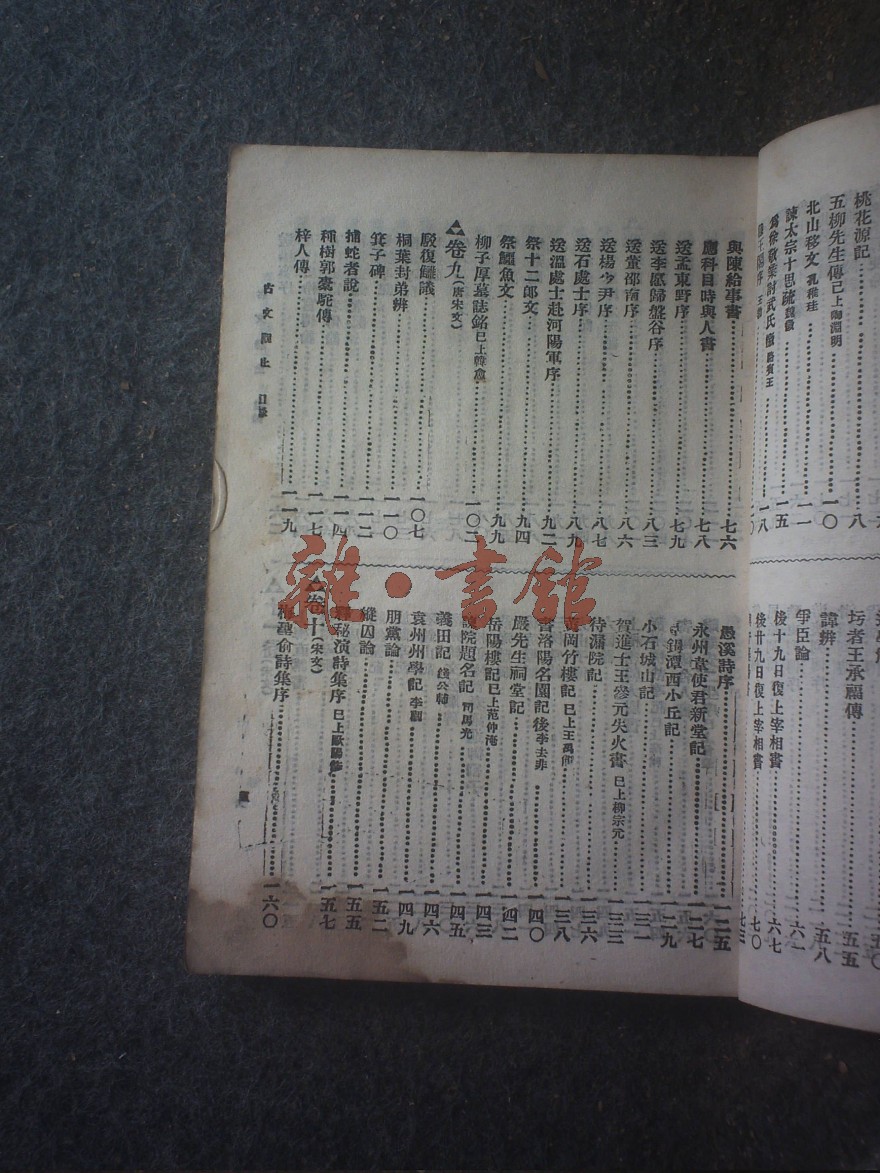 桃花源記⋯⋯八
五柳先生傳 已上陶淵明⋯⋯一〇
北山移文 孔稚珪⋯⋯一一
諫太宗十思疏 魏徵⋯⋯一五
爲徐敬業討武氏檄 駱賓王⋯⋯一八
圬者王承福傳⋯⋯五五
諱辨⋯⋯五八
爭臣論⋯⋯六一
後十九日復上宰相書⋯⋯六七
後廿九日復上宰相書⋯⋯七〇
與陳給事書⋯⋯七六
應科目時與人書⋯⋯七八
送孟東野序⋯⋯七九
送李愿歸盤谷序⋯⋯八三
送董邵南序⋯⋯八六
送楊少尹序⋯⋯八七
送石處士序⋯⋯八九
送溫處士赴河陽軍序⋯⋯九二
祭十二郎文⋯⋯九四
祭鱷魚文⋯⋯九九
柳子厚墓誌銘 已上韓愈⋯⋯一〇二
卷九(唐宋文)
駁復讎議⋯⋯一〇七
桐葉封弟辨⋯⋯一一〇
箕子碑⋯⋯一一二
捕蛇者說⋯⋯一一四
種樹郭橐駝傳⋯⋯一一七
梓人傳⋯⋯一一九
愚溪詩序⋯⋯一二五
永州韋使君新堂記⋯⋯一二七
鈷鉧潭西小丘記⋯⋯一二九
小石城山記⋯⋯一三一
賀進士王參元失火書 已上柳宗元⋯⋯一三三
待漏院記⋯⋯一三六
黃岡竹樓記 已上王禹偁⋯⋯一三八
書洛陽名園記後 李去非⋯⋯一四〇
嚴先生祠堂記⋯⋯一四二
岳陽樓記 已上范仲淹⋯⋯一四三
諫院題名記 司馬光⋯⋯一四五
義田記 錢公輔⋯⋯一四六
袁州州學記 李覯⋯⋯一四九
朋黨論⋯⋯一五二
縱囚論⋯⋯一五五
釋秘演詩集序 已上歐陽修⋯⋯一五七
卷十(宋文)
梅聖俞詩集序⋯⋯一六〇
古文觀止 目錄
雜·書館